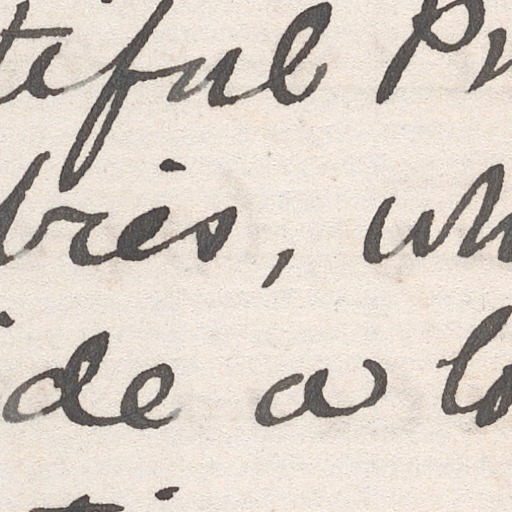 tiful Pr
bries, wh
ide a lo